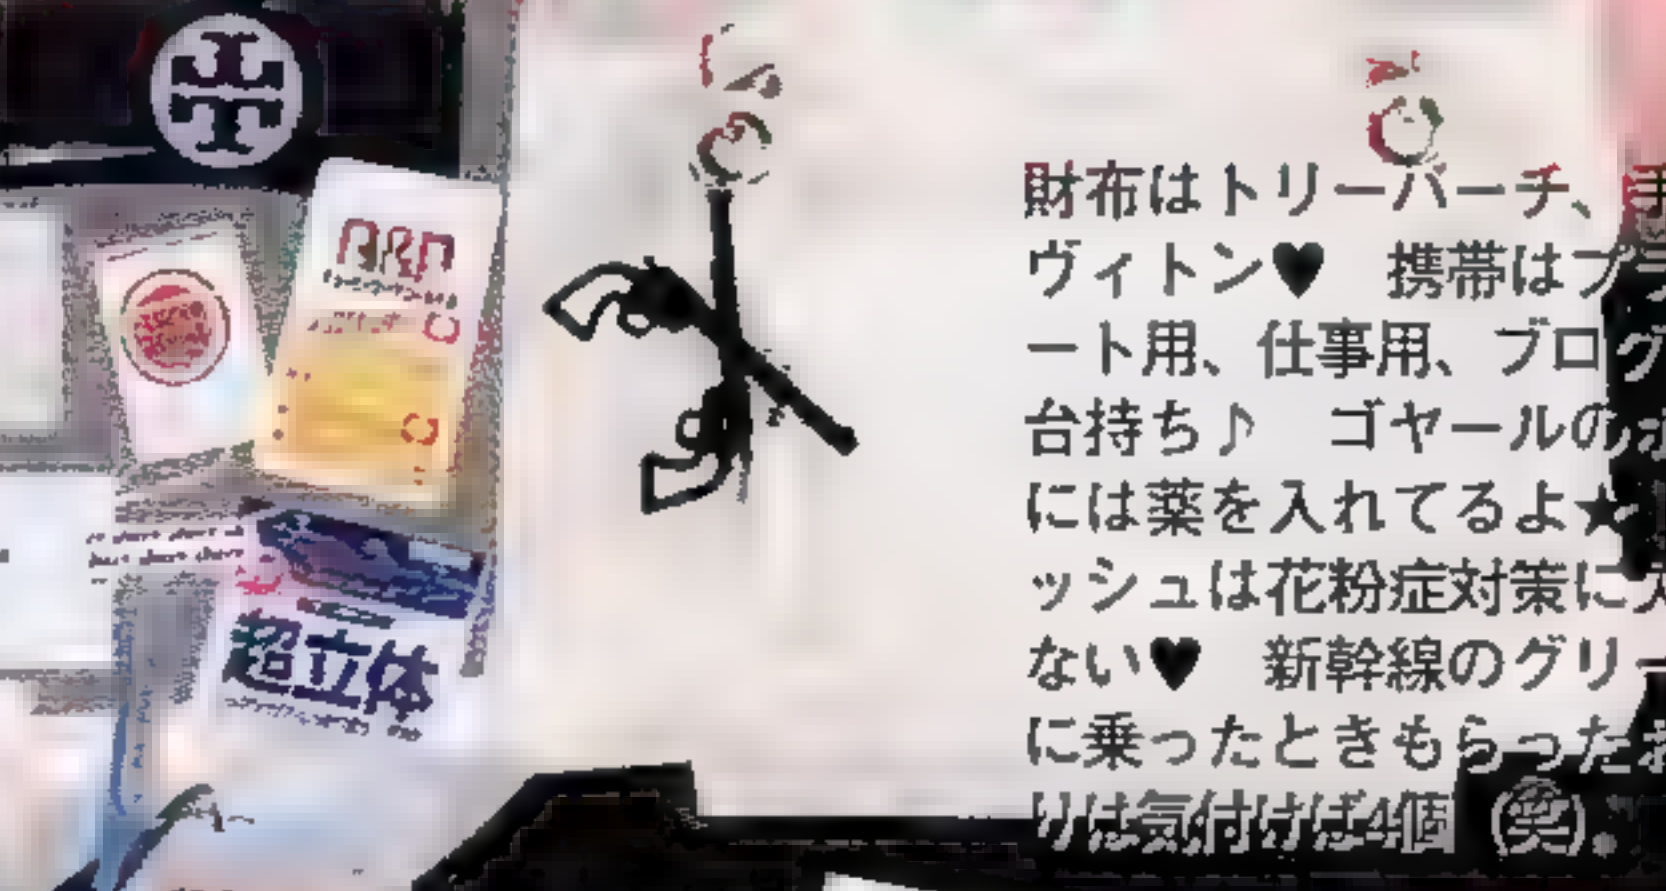 財布はトリーバーチ、手
ヴィトン♥ 携帯はプラ
ート用、仕事用、ブログ
台持ち♪ ゴヤールのポ
には薬を入れてるよ★
ッシュは花粉症対策に欠
ない♥ 新幹線のグリー
に乗ったときもらったお
りは気付けば4個（笑）。
超立体